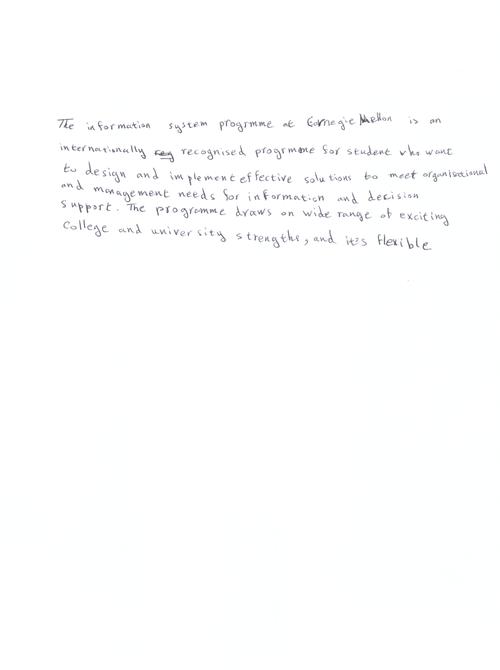 The information system progrmme at Carnegie Mellon is an
internationally recognised progrmme for student who want
to design and implement effective solutions to meet organisational
and management needs for information and decision
support. The programme draws on wide range of exciting
College and university strengths, and it's flexible